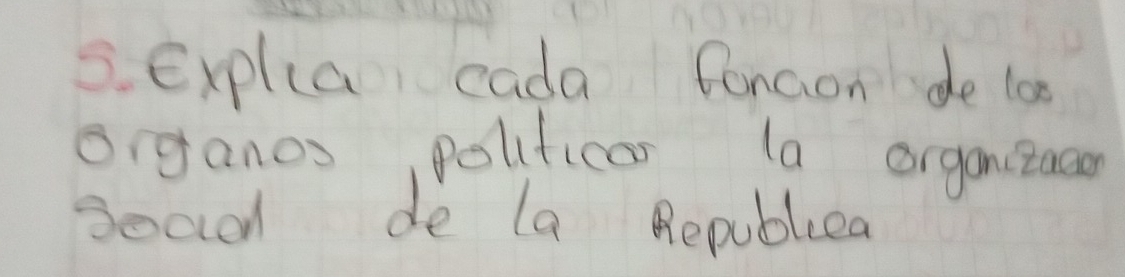 5. Explica cada función de los
organos políticos la organización
social de la Republica